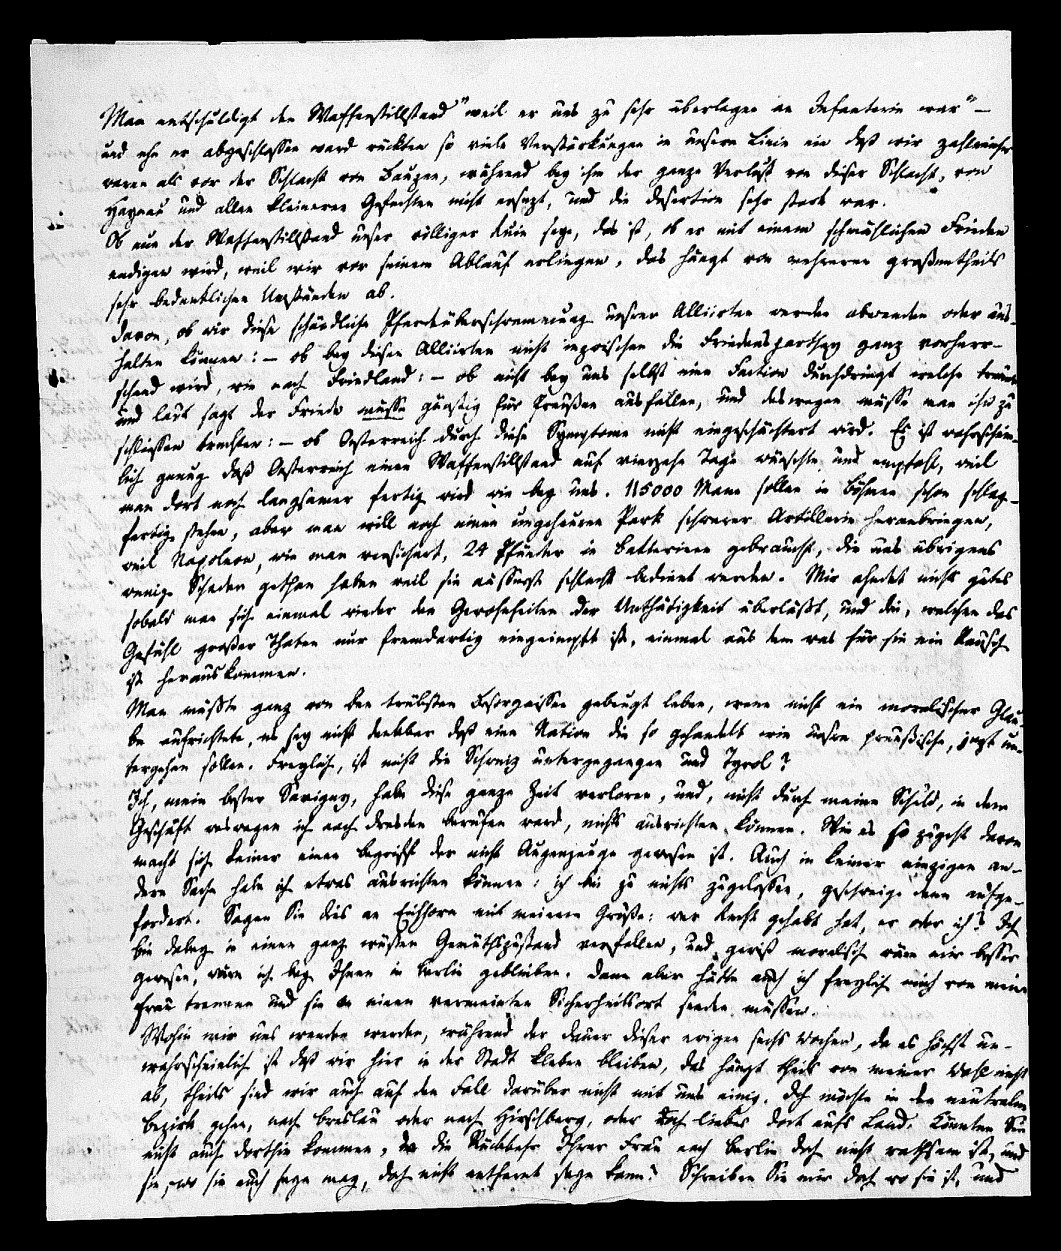 Man entschuldigt den Waffenstillstand "weil er uns zu sehr überlegen an Infanterie war" –
und ehe er abgeschlossen ward rückten so viele Verstärkungen in unsere Linie ein daß wir zahlreicher
waren als vor der Schlacht von Bauzen, während bey ihm der ganze Verlust von dieser Schlacht, von
Haynau und allen kleineren Gefechten nicht ersezt, und die Desertion sehr stark war.
Ob nun der Waffenstillstand unser völliger Ruin sey, das ist, ob er mit einem schmählichen Frieden
endigen wird, weil wir vor seinem Ablauf erliegen, das hängt von mehreren großentheils
sehr bedenklichen Umständen ab.
Davon, ob wir diese schändliche Pferdeüberschwemmung unsrer Alliirten werden abwenden oder aus-
halten können: – ob bey diesen Alliirten nicht inzwischen die Friedensparthey ganz vorherr-
schend wird, wie nach Friedland: – ob nicht bey uns selbst eine Faction durchdringt welche träumt
und laut sagt der Friede müsse günstig für Preußen ausfallen, und deswegen müsse man ihn zu
schliessen trachten: – ob Oesterreich durch diese Symptome nicht eingeschüchtert wird. Es ist wahrschein-
lich genug daß Oesterreich einen Waffenstillstand auf vierzehn Tage wünschte und empfahl, weil
man dort noch langsamer fertig wird wie bey uns. 115000 Mann sollen in Böhmen schon schlag-
fertig stehen, aber man will noch einen ungeheuren Park schwerer Artillerie heranbringen,
weil Napoleon, wie man versichert, 24 Pfünder in Batterieen gebraucht, die uns übrigens
wenig Schaden gethan haben weil sie äusserst schlecht bedient werden. Mir ahndet nichts gutes
sobald man sich einmal wieder den Gewohnheiten der Unthätigkeit überläßt, und die, welchen das
Gefühl großer Thaten nur fremdartig eingeimpft ist, einmal aus dem was für sie ein Rausch
ist herauskommen.
Man müßte ganz von den trübsten Besorgnissen gebeugt leben, wenn nicht ein moralischer Glau-
be aufrichtete, es sey nicht denkbar daß eine Nation die so gehandelt wie unsere preußische, jezt un-
tergehen sollen. Freylich, ist nicht die Schweiz untergegangen und Tyrol?
Ich, mein bester Savigny, habe diese ganze Zeit verloren, und, nicht durch meine Schuld, in dem
Geschäft weswegen ich nach Dresden berufen ward, nichts ausrichten können. Wie es so zugeht davon
macht sich keiner einen Begriff der nicht Augenzeuge gewesen ist. Auch in keiner einzigen an-
dern Sache habe ich etwas ausrichten können: ich bin zu nichts zugelassen, geschweige denn aufge-
fordert. Sagen Sie dies an Eichhorn mit meinem Gruße: wer Recht gehabt hat, er oder ich? Ich
bin dabey in einen ganz wüsten Gemüthszustand verfallen, und gewiß moralisch wäre mir besser
gewesen, wäre ich bey Ihnen in Berlin geblieben. Dann aber hätte auch ich freylich mich von meiner
Frau trennen und sie an einen vermeinten Sicherheitsort senden müssen.
Wohin wir uns wenden werden, während der Dauer dieser ewigen sechs Wochen, da es höchst un-
wahrscheinlich ist daß wir hier in der Stadt kleben bleiben, das hängt theils von meiner Wahl nicht
ab, theils sind wir auch auf den Fall darüber nicht mit uns einig. Ich möchte in den neutralen
Bezirk gehen, nach Breslau oder nach Hirschberg, oder noch lieber dort aufs Land. Könnten Sie
nicht auch dorthin kommen, da die Rückkehr Ihrer Frau nach Berlin doch nicht rathsam ist, und
sie, wo sie auch seyn mag, doch nicht entfernt seyn kann? Schreiben Sie mir doch wo sie ist, und